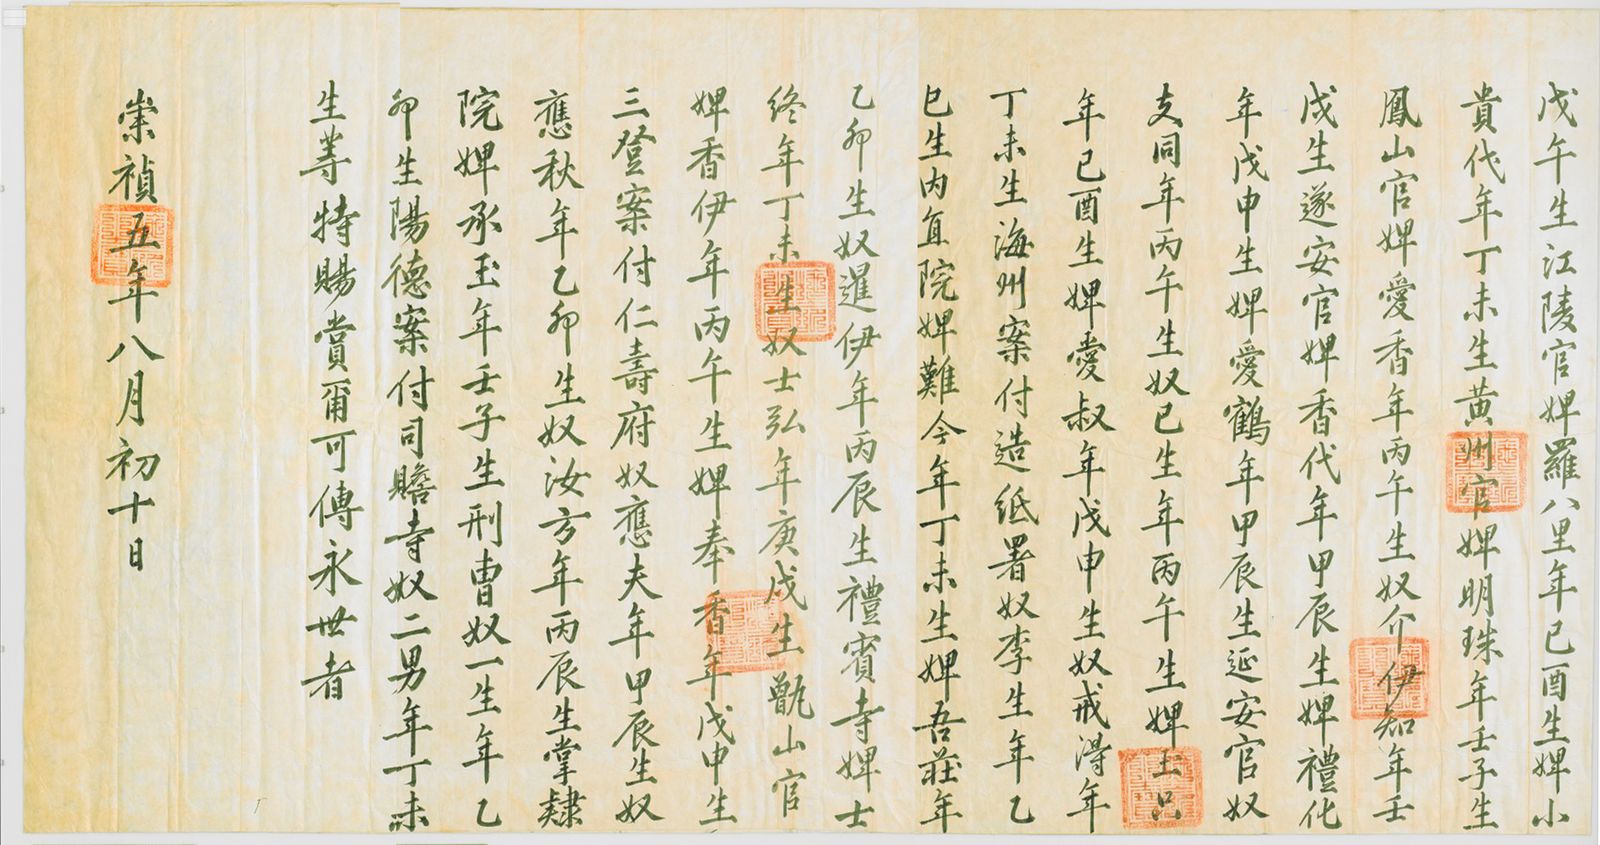 戊午生江陵官婢羅八里年己酉生婢小
貴代年丁未生黃州官婢明珠年壬子生
鳳山官婢愛香年丙午生奴介伊知年壬
戌生遂安官婢香代年甲辰生婢禮化
年戊申生婢愛鶴年甲辰生延安官奴
支同年丙午生奴巳生年丙午生婢玉只
年己酉生婢愛叔年戊申生奴戒淂年
丁未生海州案付造紙署奴李生年乙
巳生內貟院婢難今年丁未生婢吾莊年
乙卯生奴暹伊年丙辰生禮賓寺婢士
終年丁未生奴士弘年庚戌生甑山官
婢香伊年丙午生婢奉香年戊申生
三登案付仁壽府奴應夫年甲辰生奴
應秋年乙卯生奴汝方年丙辰生掌隸
院婢承玉年壬子生刑曹奴一生年乙
卯生陽德案付司贍寺奴二男年丁未
生等特賜賞爾可傳永世者
崇禎五年八月初十日